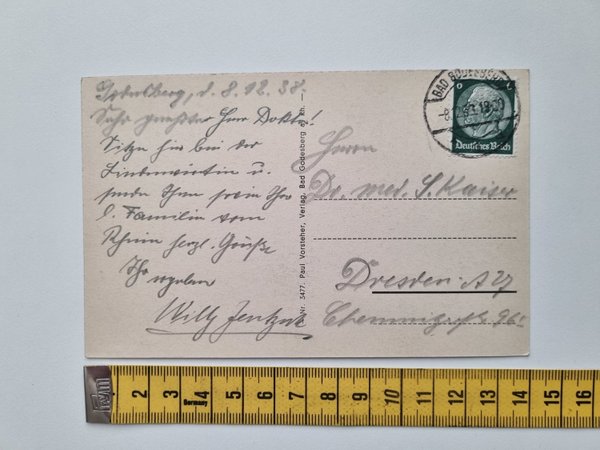 Godesberg, d. 8.12.38.
Sehr geehrter Herr Doktor!
Sitze hier bei der
Lindenwirtin u.
sende Ihnen sowie Ihrer
l. Familie vom
Rhein herzl. Grüße
Ihr ergebener
Willy
Nr. 5477. Paul Vorsteher, Verlag, Bad Godesberg a. Rh. —
BAD GODESBERG
Deutsches Reich
Herrn
Dr. med. S. Kaiser
Dresden-A 27
Chemnitzerstr. 96
1 2 3 4 5 6 7 8 9 10 11 12 13 14 15 16
Germany